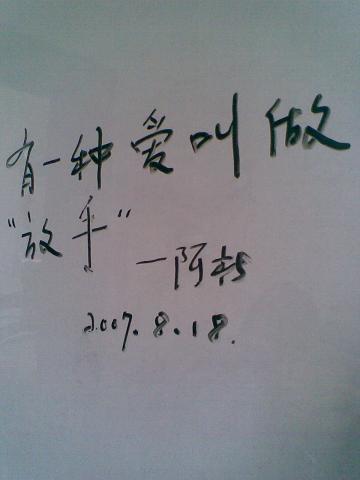 有一种爱叫做
"放手"
—阿杜
2007.8.18.